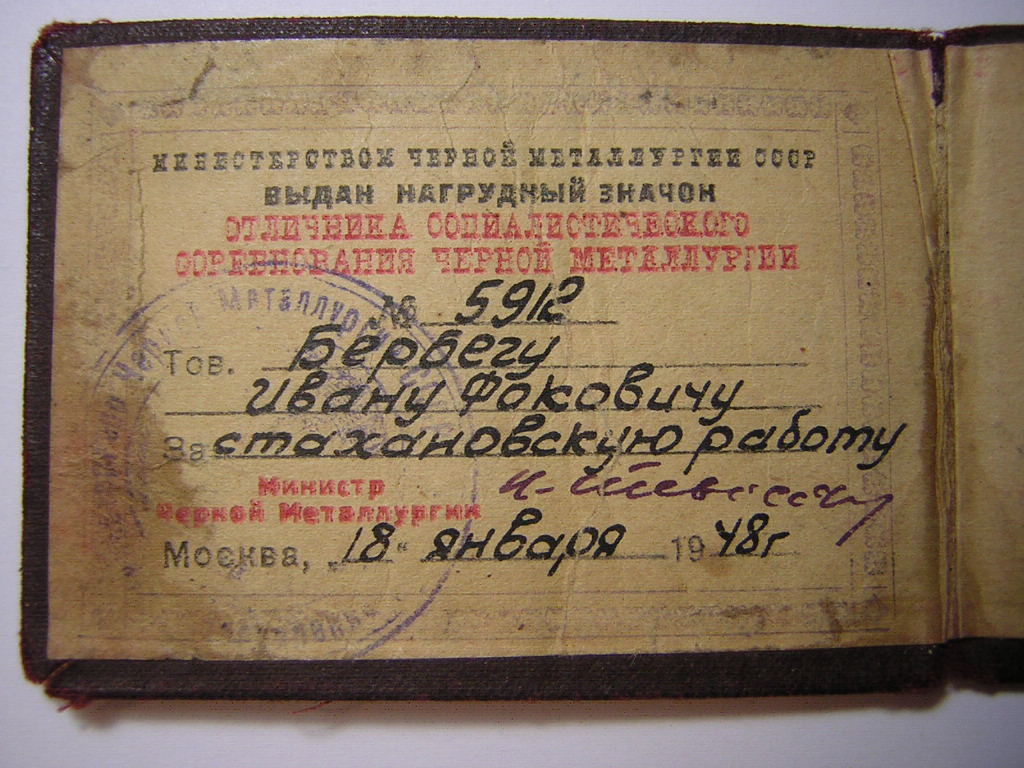 МИНИСТЕРСТВОМ ЧЕРНОЙ МЕТАЛЛУРГИИ СССР
ВЫДАН НАГРУДНЫЙ ЗНАЧОК
ОТЛИЧНИКА СОЦИАЛИСТИЧЕСКОГО
СОРЕВНОВАНИЯ ЧЕРНОЙ МЕТАЛЛУРГИИ
№ 5912
Тов. Бербегу
Ивану Фоковичу
За стахановскую работу
Министр
Черной Металлургии
Москва, „18" января 1948г